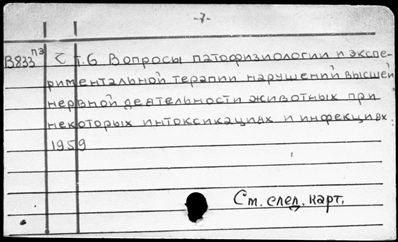 -7-
В833пэ т.6 Вопросы патофизиологии и экспе-
риментальной терапии нарушений высшей
нервной деятельности животных при
некоторых интоксикациях и инфекциях.
1959
См. след. карт.